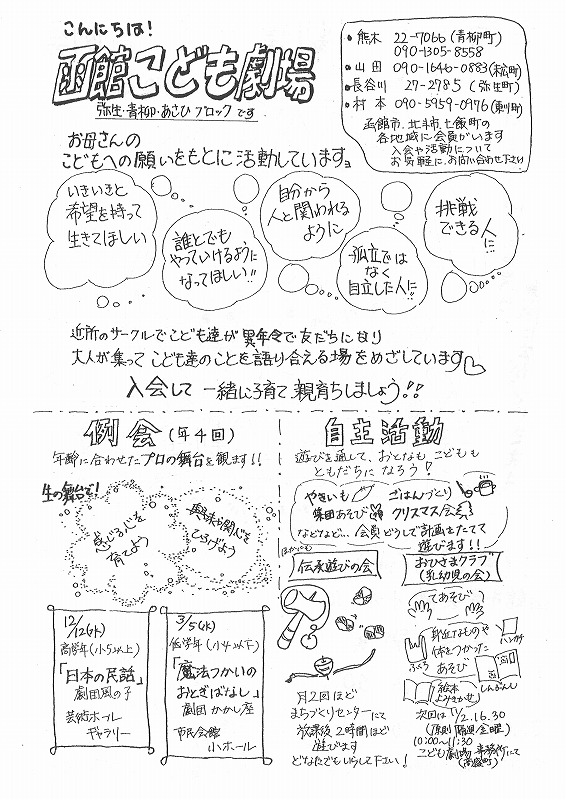 こんにちは!
函館こども劇場
弥生・青柳・あさひ ブロックです
・熊木 22-7066 (青柳町)
090-1305-8558
・山田 090-1646-0883(松町)
・長谷川 27-2785 (弥生町)
・村本 090-5959-0976(東川町)
函館市、北斗市、七飯町の
各地域に会員がいます
入会や活動について
お気軽に、お問い合わせ下さい
お母さんの
こどもへの願いをもとに活動しています。
いきいきと
希望を持って
生きてほしい
誰とでも
やっていけるように
なってほしい!!
自分から
人と関われる
ように
孤立では
なく
自立した人に!!
挑戦
できる人に!!
近所のサークルでこども達が異年令で友だちになり
大人が集ってこども達のことを語り合える場をめざしています♡
入会して 一緒に子育て、親育ちしましょう!!
例会(年4回)
年齢に合わせたプロの舞台を観ます!!
生の舞台で!
感じる心を
育てよう
興味や関心を
ひろげよう
12/12(水)
高学年(小5以上)
「日本の民話」
劇団風の子
芸術ホール
ギャラリー
3/5(火)
低学年(小4以下)
「魔法つかいの
おとぎばなし」
劇団 かかし座
市民会館
小ホール
自主活動
遊びを通して、おとなも こどもも
ともだちに なろう!
やきいも
ごはんづくり
集団あそび
クリスマス会
などなど… 会員どうしで計画をたてて
遊びます!!
ほかにも
伝承遊びの会
月2回ほど
まちづくりセンターにて
放課後 2時間ほど
遊びます
どなたでもいらして下さい!
おひさまクラブ
(乳幼児の会)
てあそび
身近なものや
体をつかった
あそび
ハンカチ
ふくろ
しんぶんし
絵本
よみきかせ
次回は 11/2.16.30
(原則 隔週 金曜)
10:00~11:30
こども劇場 事務所にて